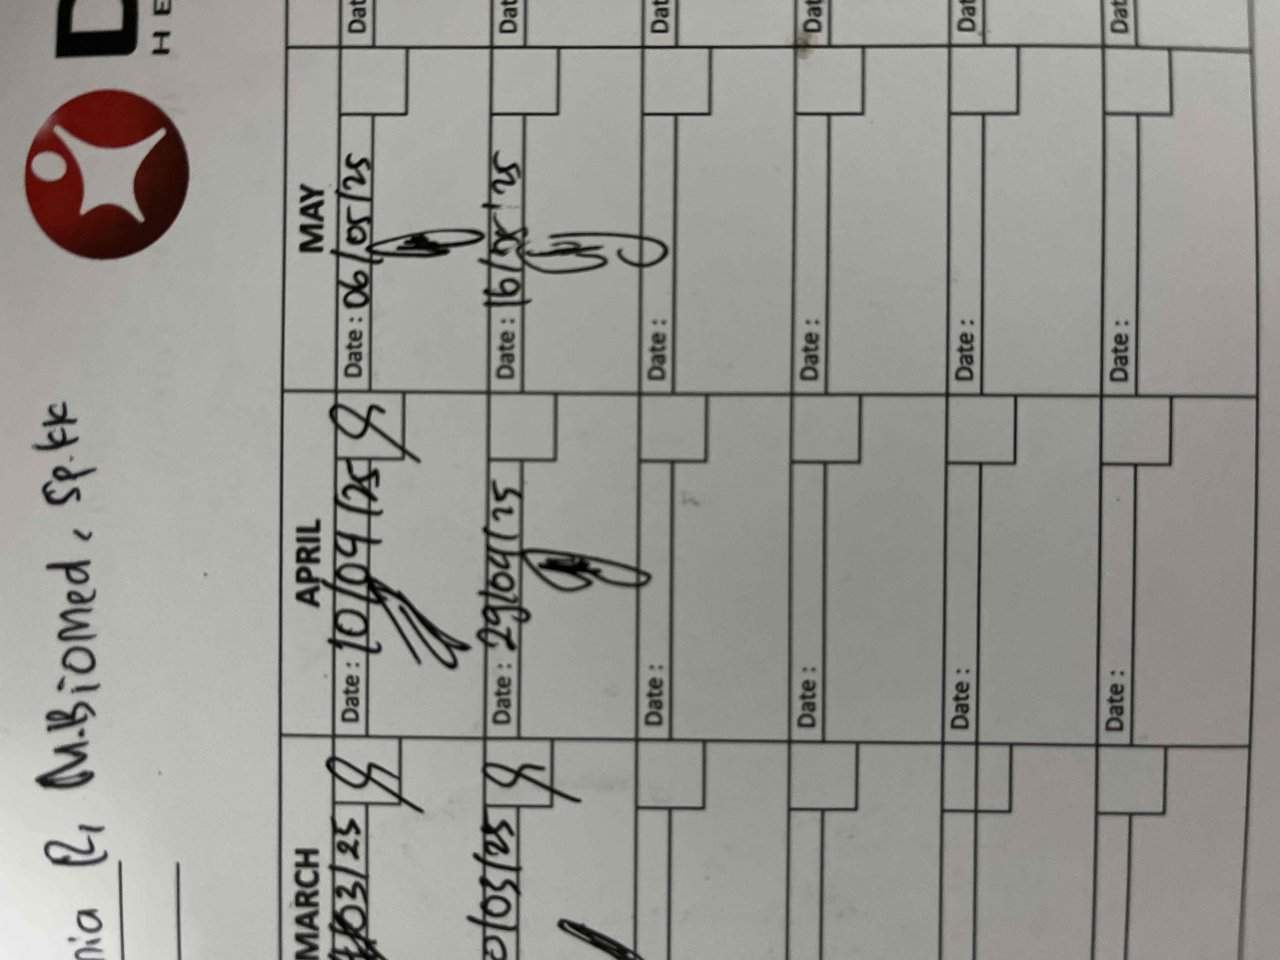 nia R, M.Biomed, Sp.KK
D
HE
MARCH APRIL MAY
/03/25 Date : 10/04/25 Date : 06/05/25 Dat
0/03/25 Date : 29/04/25 Date : 16/05'25 Dat
Date : Date : Dat
Date : Date : Dat
Date : Date : Dat
Date : Date : Dat